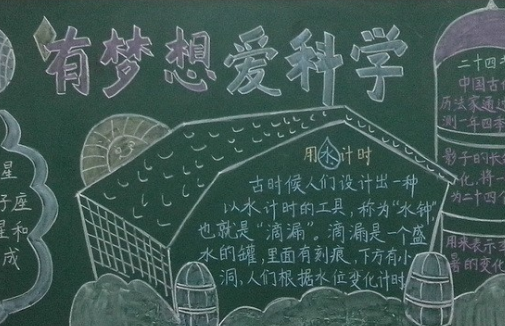 有梦想爱科学
星
子座
星和
成
用水计时
古时候人们设计出一种
以水计时的工具，称为“水钟”
也就是“滴漏”。滴漏是一个盛
水的罐，里面有刻痕，下方有小
洞，人们根据水位变化计时
二十四
中国古
历法家通过
测一年四季
影子的长
化，将一
为二十四个
用来表示
暑的变化